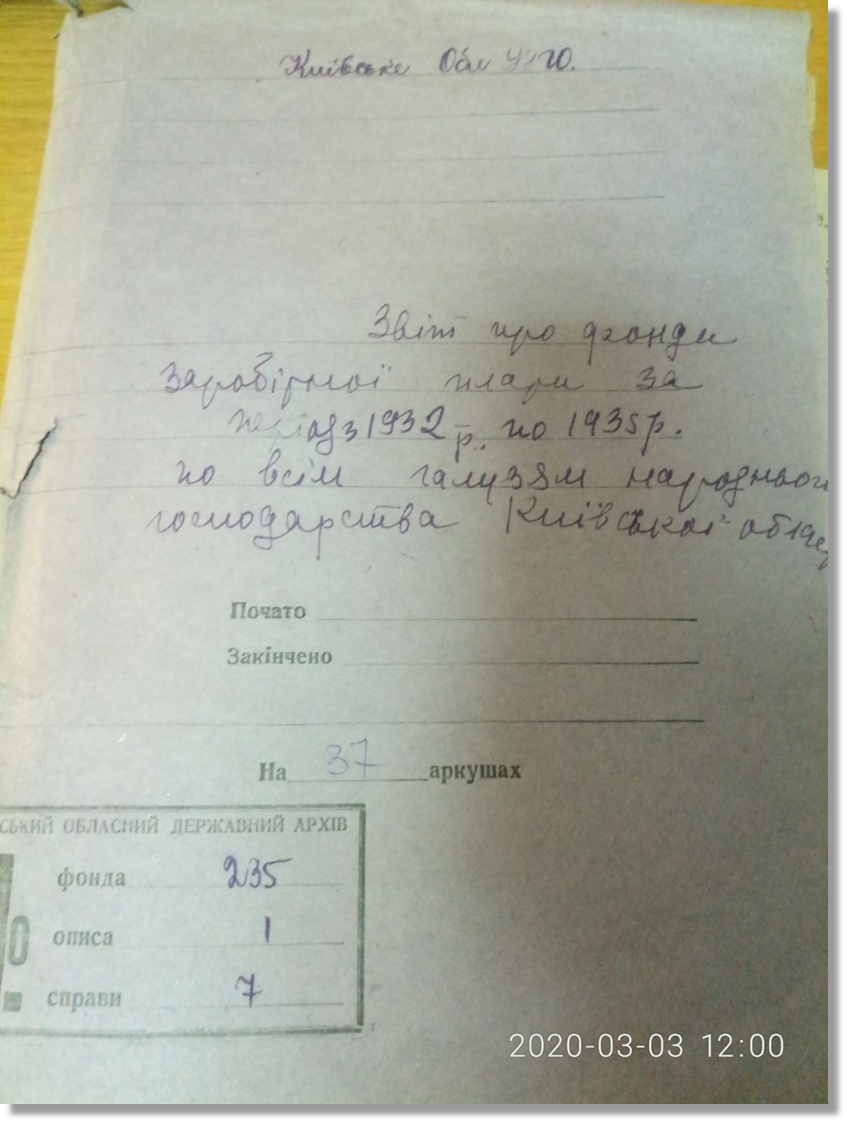 Київське Обл УНГО.
Звіт про фонди
заробітної плати за
період з 1932 р. по 1935 р.
по всім галузям народнього
господарства Київської облас
Почато
Закінчено
На 37 аркушах
СЬКИЙ ОБЛАСНИЙ ДЕРЖАВНИЙ АРХІВ
фонда 235
№ описа 1
справи 7
2020-03-03 12:00